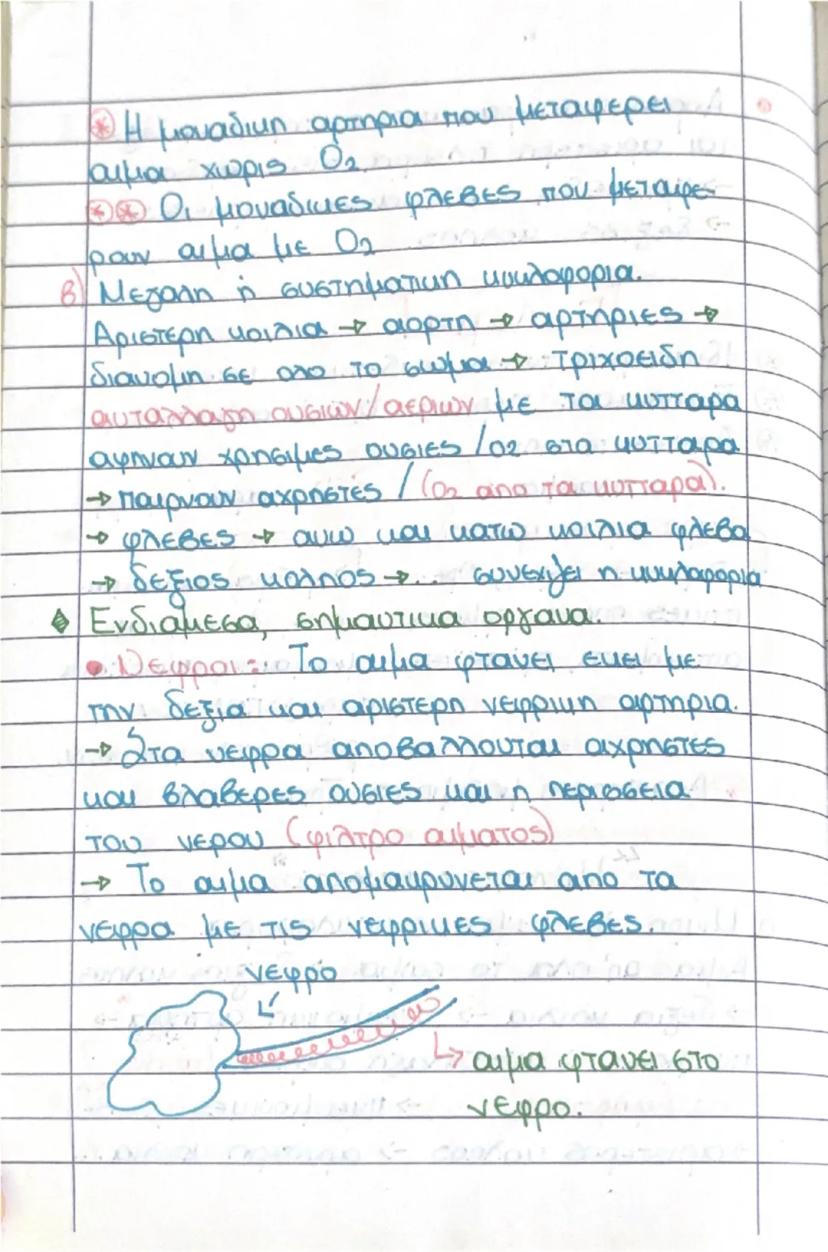 * Η μοναδικη αρτηρια που μεταφερει
αιμα χωρις O2.
** Οι μοναδικες φλεβες που μεταφε-
ρουν αιμα με O2
β) Μεγαλη ή συστηματικη κυκλοφορια.
Αριστερη κοιλια → αορτη → αρτηριες →
διανομη σε ολο το σωμα → τριχοειδη
ανταλλαγη ουσιων/αεριων με τα κυτταρα
αφηναν χρησιμες ουσιες / O2 στα κυτταρα
→ παιρναν αχρηστες / (O2 απο τα κυτταρα).
→ φλεβες → ανω και κατω κοιλια φλεβα
→ δεξιος κολπος → ... συνεχιζει η κυκλοφορια
Ενδιαμεσα, σημαντικα οργανα.
• Νεφροι: Το αιμα φτανει εκει με
την δεξια και αριστερη νεφρικη αρτηρια.
→ Στα νεφρα αποβαλλονται αχρηστες
και βλαβερες ουσιες και η περισσεια
του νερου (φιλτρο αιματος)
→ Το αιμα απομακρυνεται απο τα
νεφρα με τις νεφρικες φλεβες.
νεφρο
αιμα φτανει στο
νεφρο.